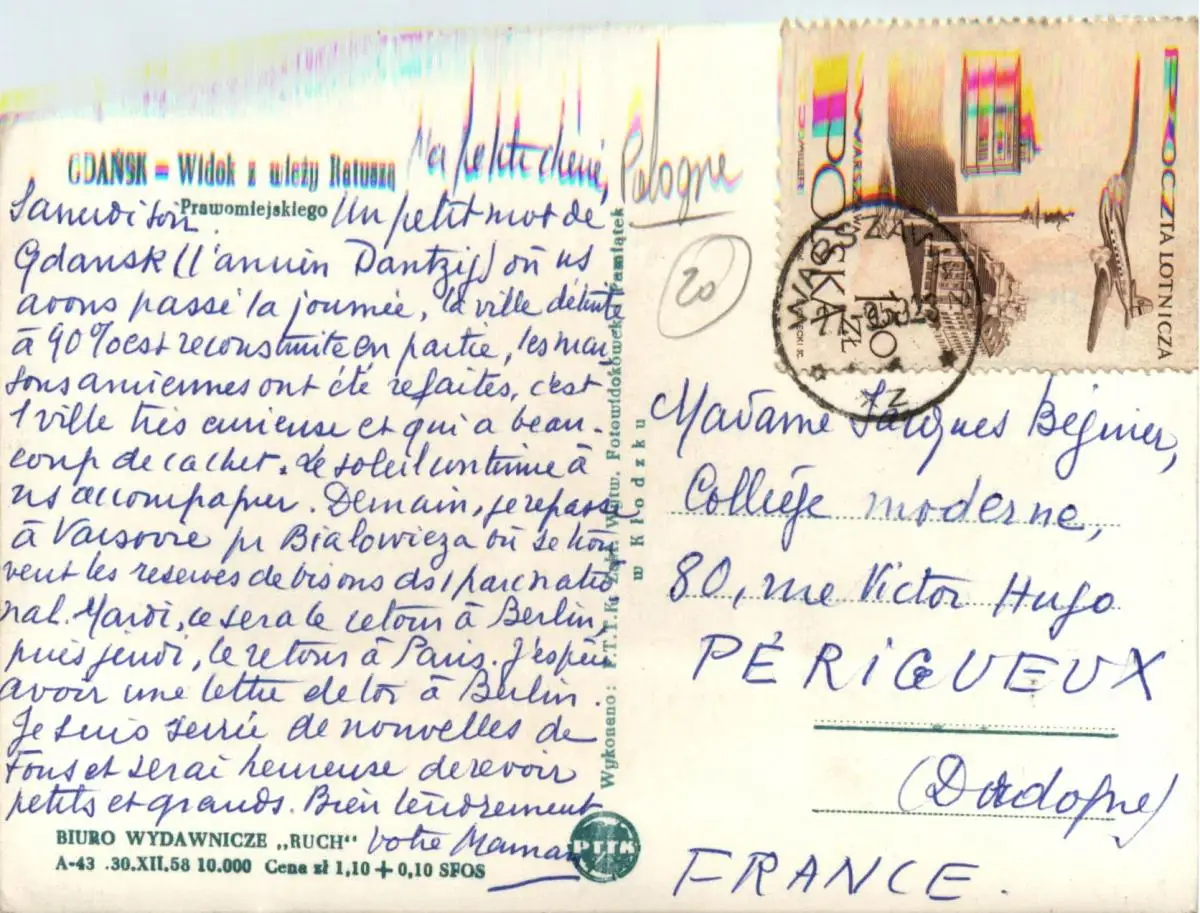 GDAŃSK – Widok z wieży Ratusza
Prawomiejskiego
Pologne
20
Samedi soir. Un petit mot de
Gdansk (l'ancien Dantzig) où ns
avons passé la journée, la ville détruite
à 90% est reconstruite en partie, les mai
sons anciennes ont été refaites, c'est
1 ville très curieuse et qui a beau-
coup de cachet. Le soleil continue à
ns accompagner. Demain, je repasse
à Varsovie pr Bialowieza où se trou
vent les réserves de bisons ds 1 parc natio
nal. Mardi, ce sera le retour à Berlin,
puis jeudi, le retour à Paris. J'espère
avoir une lettre de toi à Berlin.
Je suis sevrée de nouvelles de
Tous et serai heureuse de revoir
petits et grands. Bien tendrement
Votre Maman
BIURO WYDAWNICZE „RUCH"
A-43 .30.XII.58 10.000 Cena zł 1,10 + 0,10 SFOS
PTTK
Wykonano: P.T.T.K. Zakł. Wytw. Fotowidokówek i Pamiątek
w Kłodzku
POCZTA LOTNICZA
ZŁ
Madame Jacques
Collège moderne,
80, rue Victor Hugo
PÉRIGUEUX
(Dordogne)
FRANCE.